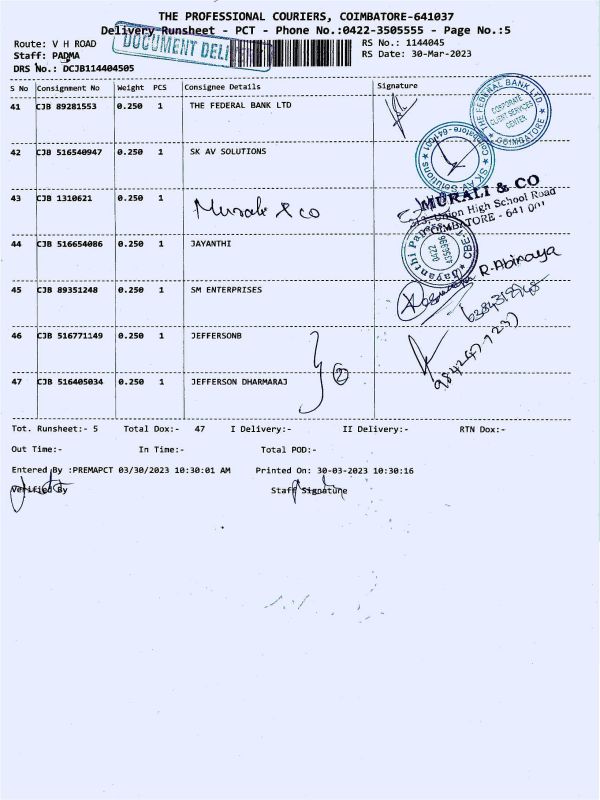 THE PROFESSIONAL COURIERS, COIMBATORE-641037
Delivery Runsheet - PCT - Phone No.:0422-3505555 - Page No.:5
Route: V H ROAD
DOCUMENT DELI
RS No.: 1144045
Staff: PADMA
RS Date: 30-Mar-2023
DRS No.: DCJB114404505
S No Consignment No Weight PCS Consignee Details Signature
41 CJB 89281553 0.250 1 THE FEDERAL BANK LTD
THE FEDERAL BANK LTD
CORPORATE
CLIENT SERVICES
CENTER
COIMBATORE
42 CJB 516540947 0.250 1 SK AV SOLUTIONS
SK AV Solutions
Coimbatore - 641 001
43 CJB 1310621 0.250 1 Murali & co
MURALI & CO
Union High School Road
COIMBATORE - 641 001
44 CJB 516654086 0.250 1 JAYANTHI
Jayanthi
CBE-1
0422
R. Abinaya
45 CJB 89351248 0.250 1 SM ENTERPRISES
46 CJB 516771149 0.250 1 JEFFERSONB
2
47 CJB 516405034 0.250 1 JEFFERSON DHARMARAJ
Tot. Runsheet:- 5 Total Dox:- 47 I Delivery:- II Delivery:- RTN Dox:-
Out Time:- In Time:- Total POD:-
Entered By :PREMAPCT 03/30/2023 10:30:01 AM Printed On: 30-03-2023 10:30:16
Verified By Staff Signature